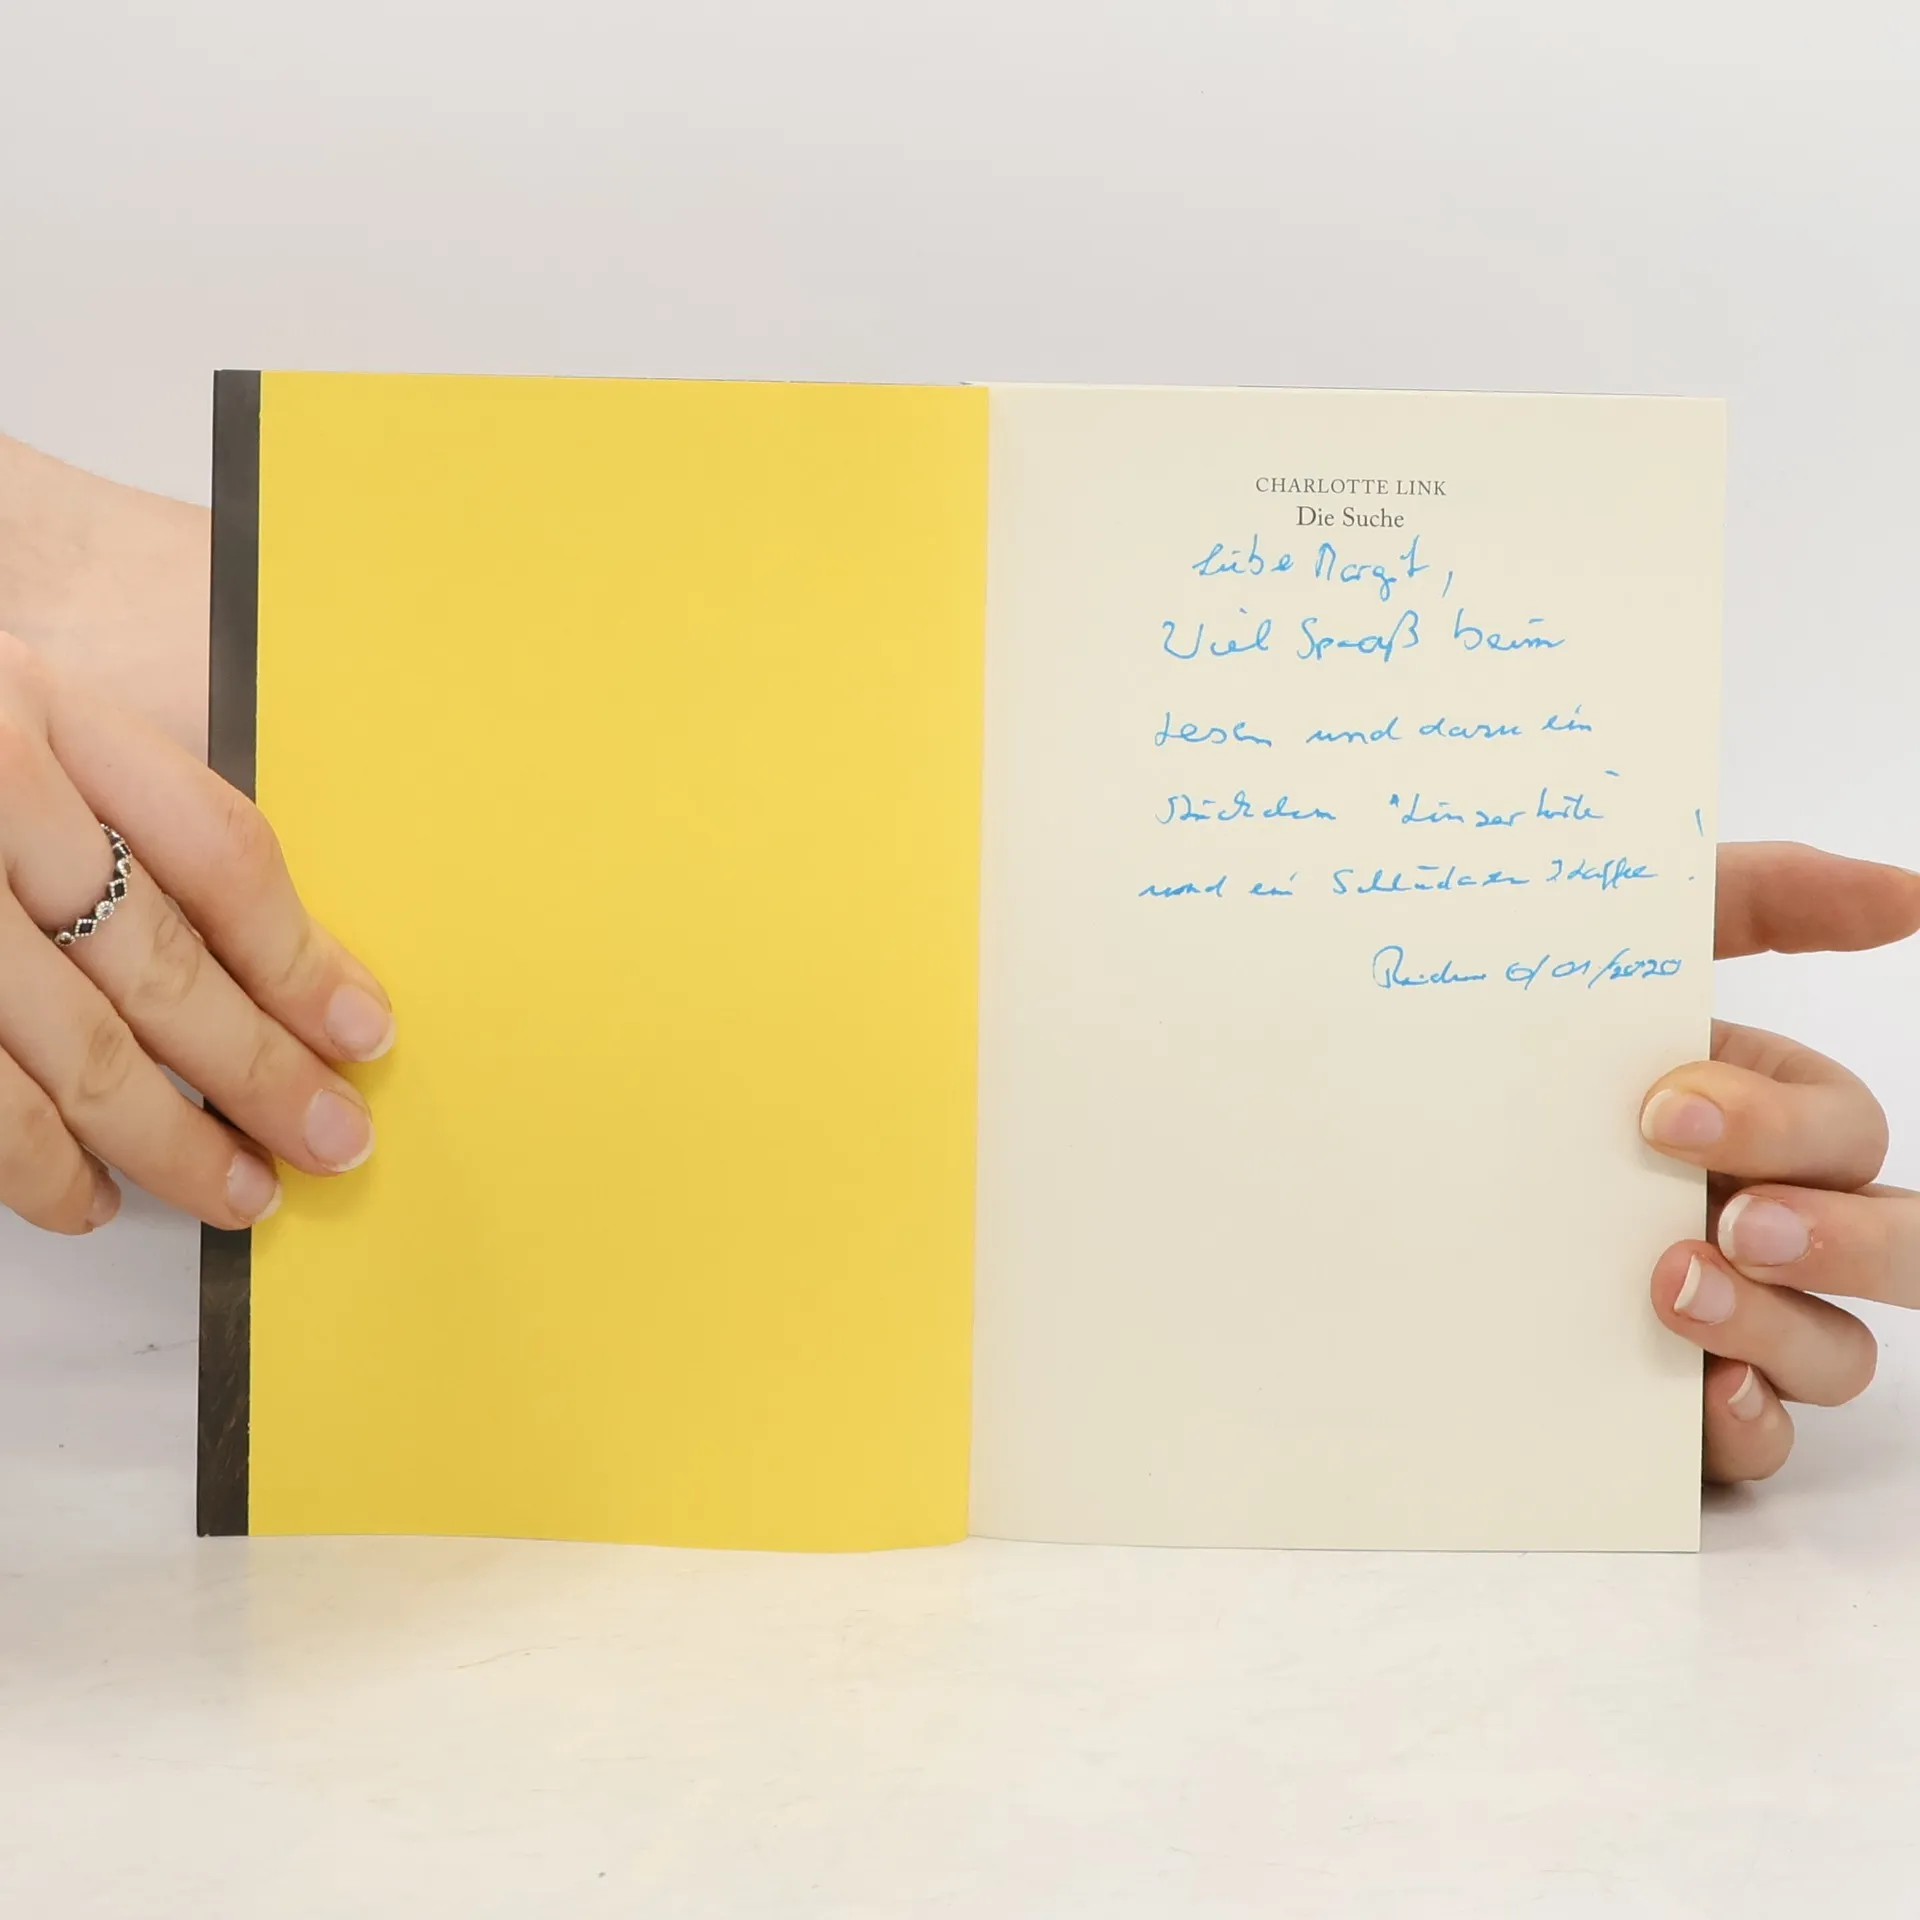 CHARLOTTE LINK
Die Suche
Liebe Margit,
Viel Spaß beim
Lesen und dazu ein
Stückchen "Linzertorte"
und ein Schlückchen Kaffee.
6/01/2020